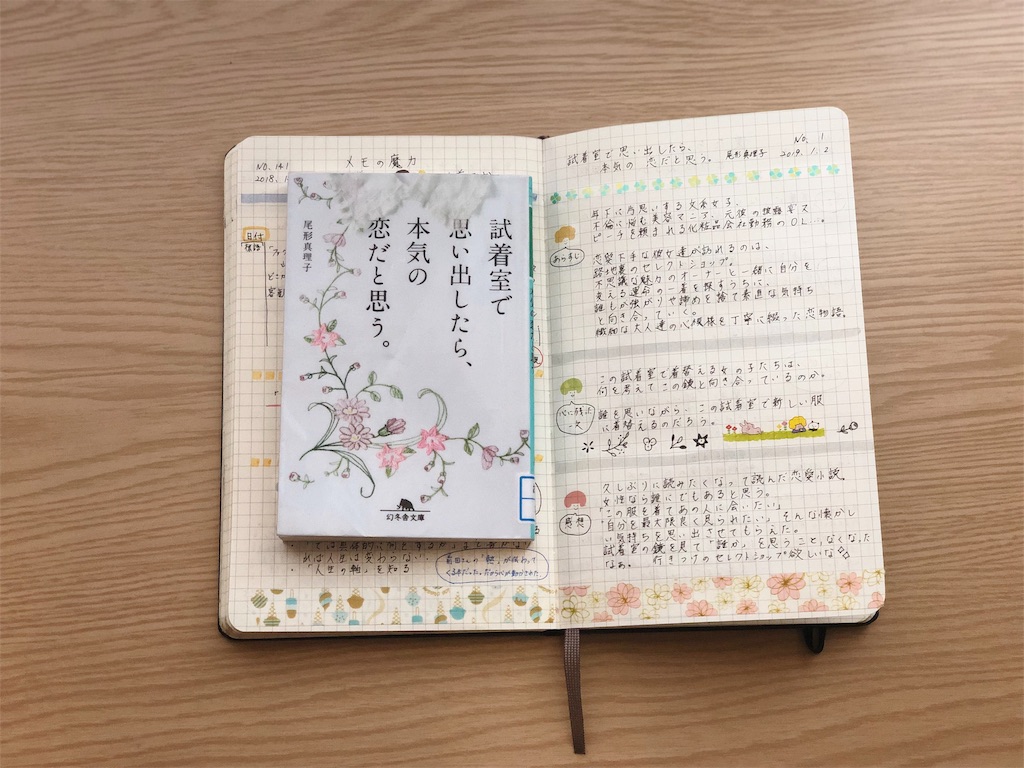 NO. 141
メモの魔力
2018. 1
日付
標語
試着室で
思い出したら、
本気の
恋だと思う。
尾形真理子
幻冬舎文庫
E
ければ人生は変わらない
・「人生の軸」を知る
前田さんの「軸」が伝わって
くる本だった。だから心が動かされた
試着室で思い出したら、
本気の恋だと思う。 尾形真理子
NO. 1
2019. 1. 2
あらすじ
年下に片思いする文系女子、
不倫に悩む美容マニア、元彼の披露宴ス
ピーチを頼まれる化粧品会社勤務のOL…。
恋愛下手な彼女達が訪れるのは、
路地裏のセレクトショップ。
不思議な魅力のオーナーと一緒に自分を
変える運命の一着を探すうちに、
誰もが強がりや諦めを捨て素直な気持ち
と向き合っていく。
繊細な大人達の心模様を丁寧に綴った恋物語。
心に残った
一文
この試着室で着替える女の子たちは、
何を思えてこの鏡と向き合っているのか。
誰を思いながら、この試着室で新しい服
に着替えるのだろう。
感想
久しぶりに読みたくなって読んだ恋愛小説
女性なら誰にでもあると思う。
「この服を着てあの人に会いたい」
「自分を最大限良く見られたい」そんな懐かし
い気持ちを思い出させてもらえた。
試着室の鏡を見て「誰か」を思うことなくなった
なぁ。 行きつけのセレクトショップ欲しいな